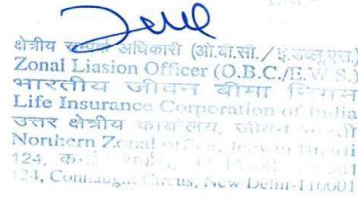 क्षेत्रीय अधिकारी (ओ.बी.सी./ई.डब्लू.एस.)
Zonal Liasion Officer (O.B.C./E.W.S.)
भारतीय जीवन बीमा निगम
Life Insurance Corporation of India
उत्तर क्षेत्रीय कार्यालय, जीवन भारती
Northern Zonal office, Jeevan Bharti
124,
124, Connaught Circus, New Delhi-110001